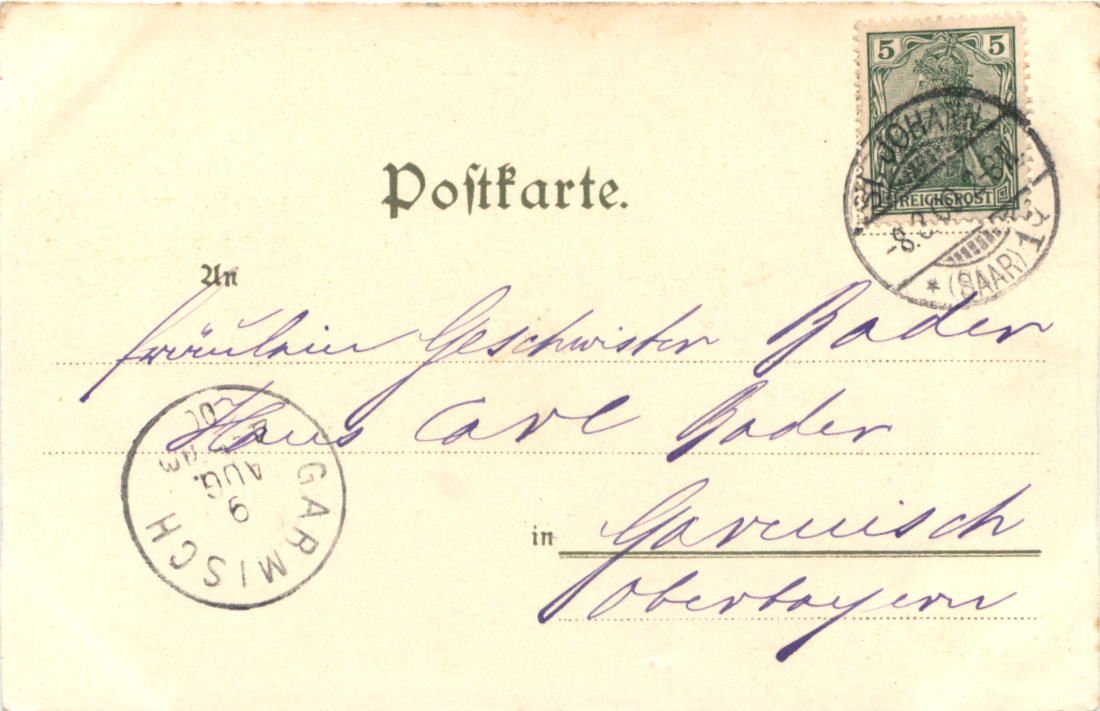 5 5
REICHSPOST
ST. JOHANN
(SAAR) 1
Postkarte.
An
Fräulein Geschwister Bader
Haus Carl Bader
in Garmisch
Oberbayern
GARMISCH
9
AUG.